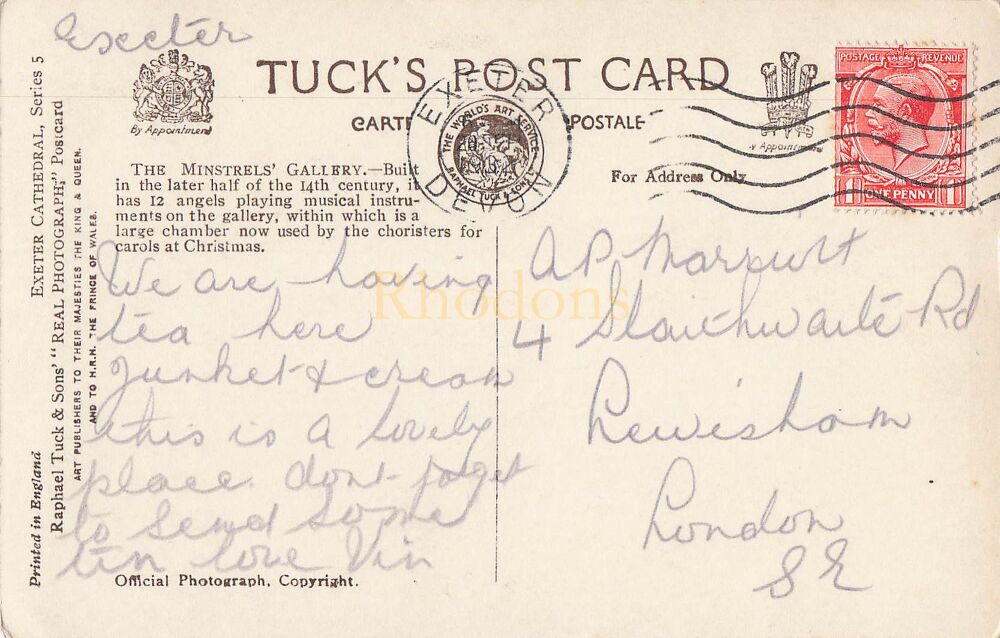 Exeter
TUCK'S POST CARD
By Appointment
CARTE POSTALE
By Appointment
For Address Only
POSTAGE REVENUE
ONE PENNY
EXETER
DEVON
THE WORLD'S ART SERVICE
RAPHAEL TUCK & SONS
THE MINSTRELS' GALLERY.—Built
in the later half of the 14th century, it
has 12 angels playing musical instru-
ments on the gallery, within which is a
large chamber now used by the choristers for
carols at Christmas.
We are having
tea here
Junket & cream
this is a lovely
place dont forget
to send some
tin love Vin
Official Photograph, Copyright.
A P
4 Slaithwaite Rd
Lewisham
London
S E
Rhodons
Printed in England
EXETER CATHEDRAL, Series 5
Raphael Tuck & Sons' "REAL PHOTOGRAPH," Postcard
ART PUBLISHERS TO THEIR MAJESTIES THE KING & QUEEN.
AND TO H.R.H. THE PRINCE OF WALES.